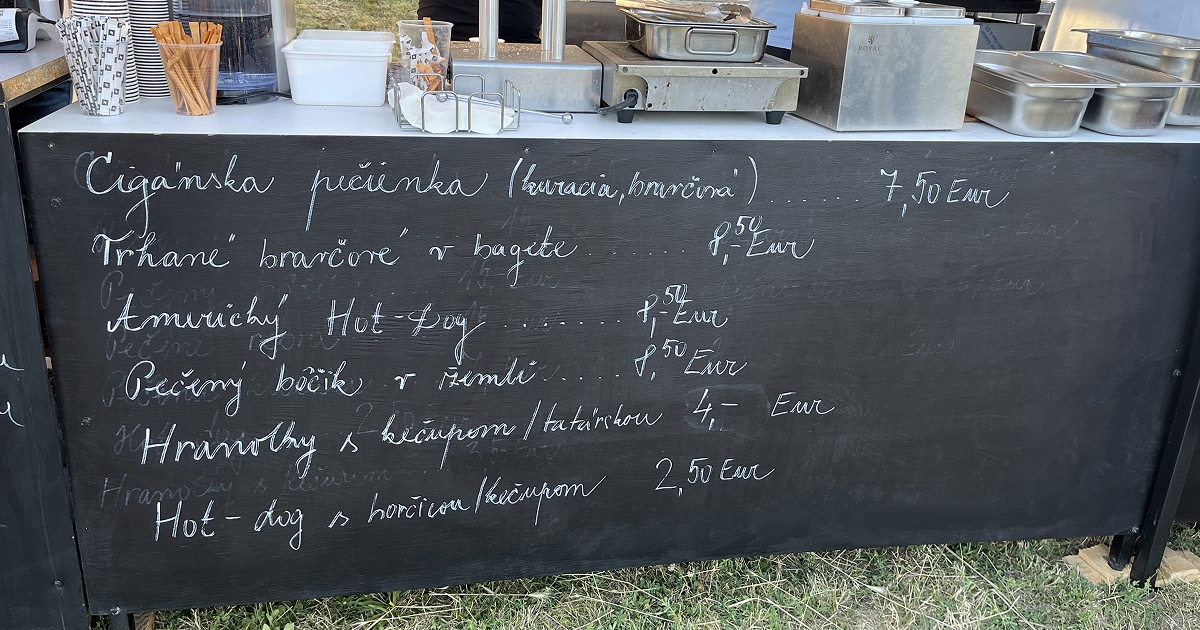 ROYAL
Cigánska pečienka (kuracia, bravčová) ........ 7,50 Eur
Trhané bravčové v bagete ....... 8,50 Eur
Americký Hot-Dog ........ 8,50 Eur
Pečený bôčik v žemli ..... 8,50 Eur
Hranolky s kečupom/tatárskou 4,- Eur
Hot-dog s horčicou/kečupom 2,50 Eur